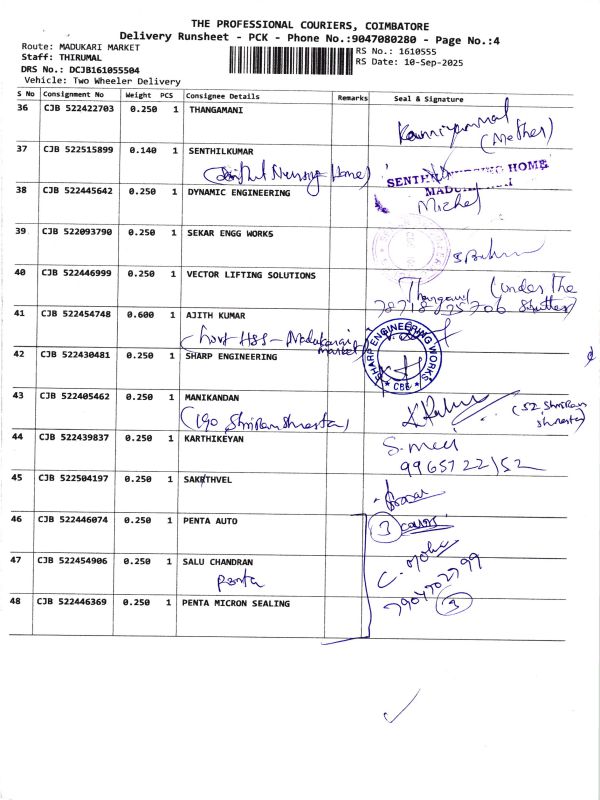 THE PROFESSIONAL COURIERS, COIMBATORE
Delivery Runsheet - PCK - Phone No.:9047080280 - Page No.:4
Route: MADUKARI MARKET
RS No.: 1610555
Staff: THIRUMAL
RS Date: 10-Sep-2025
DRS No.: DCJB161055504
Vehicle: Two Wheeler Delivery
S No Consignment No Weight PCS Consignee Details Remarks Seal & Signature
36 CJB 522422703 0.250 1 THANGAMANI
(Mother)
37 CJB 522515899 0.140 1 SENTHILKUMAR
Nursing Home)
NURSING HOME
38 CJB 522445642 0.250 1 DYNAMIC ENGINEERING
Michel
39 CJB 522093790 0.250 1 SEKAR ENGG WORKS
40 CJB 522446999 0.250 1 VECTOR LIFTING SOLUTIONS
(under the
41 CJB 522454748 0.600 1 AJITH KUMAR
(Govt HSS - Madukarai
market)
SHARP ENGINEERING WORKS
CBE
42 CJB 522430481 0.250 1 SHARP ENGINEERING
43 CJB 522405462 0.250 1 MANIKANDAN
(190 Shriram Shresta)
(52 Shriram
shresta)
44 CJB 522439837 0.250 1 KARTHIKEYAN
9965722152
45 CJB 522504197 0.250 1 SAKTHVEL
46 CJB 522446074 0.250 1 PENTA AUTO
3
47 CJB 522454906 0.250 1 SALU CHANDRAN
Penta
C. Mohan
7904702799
48 CJB 522446369 0.250 1 PENTA MICRON SEALING
3